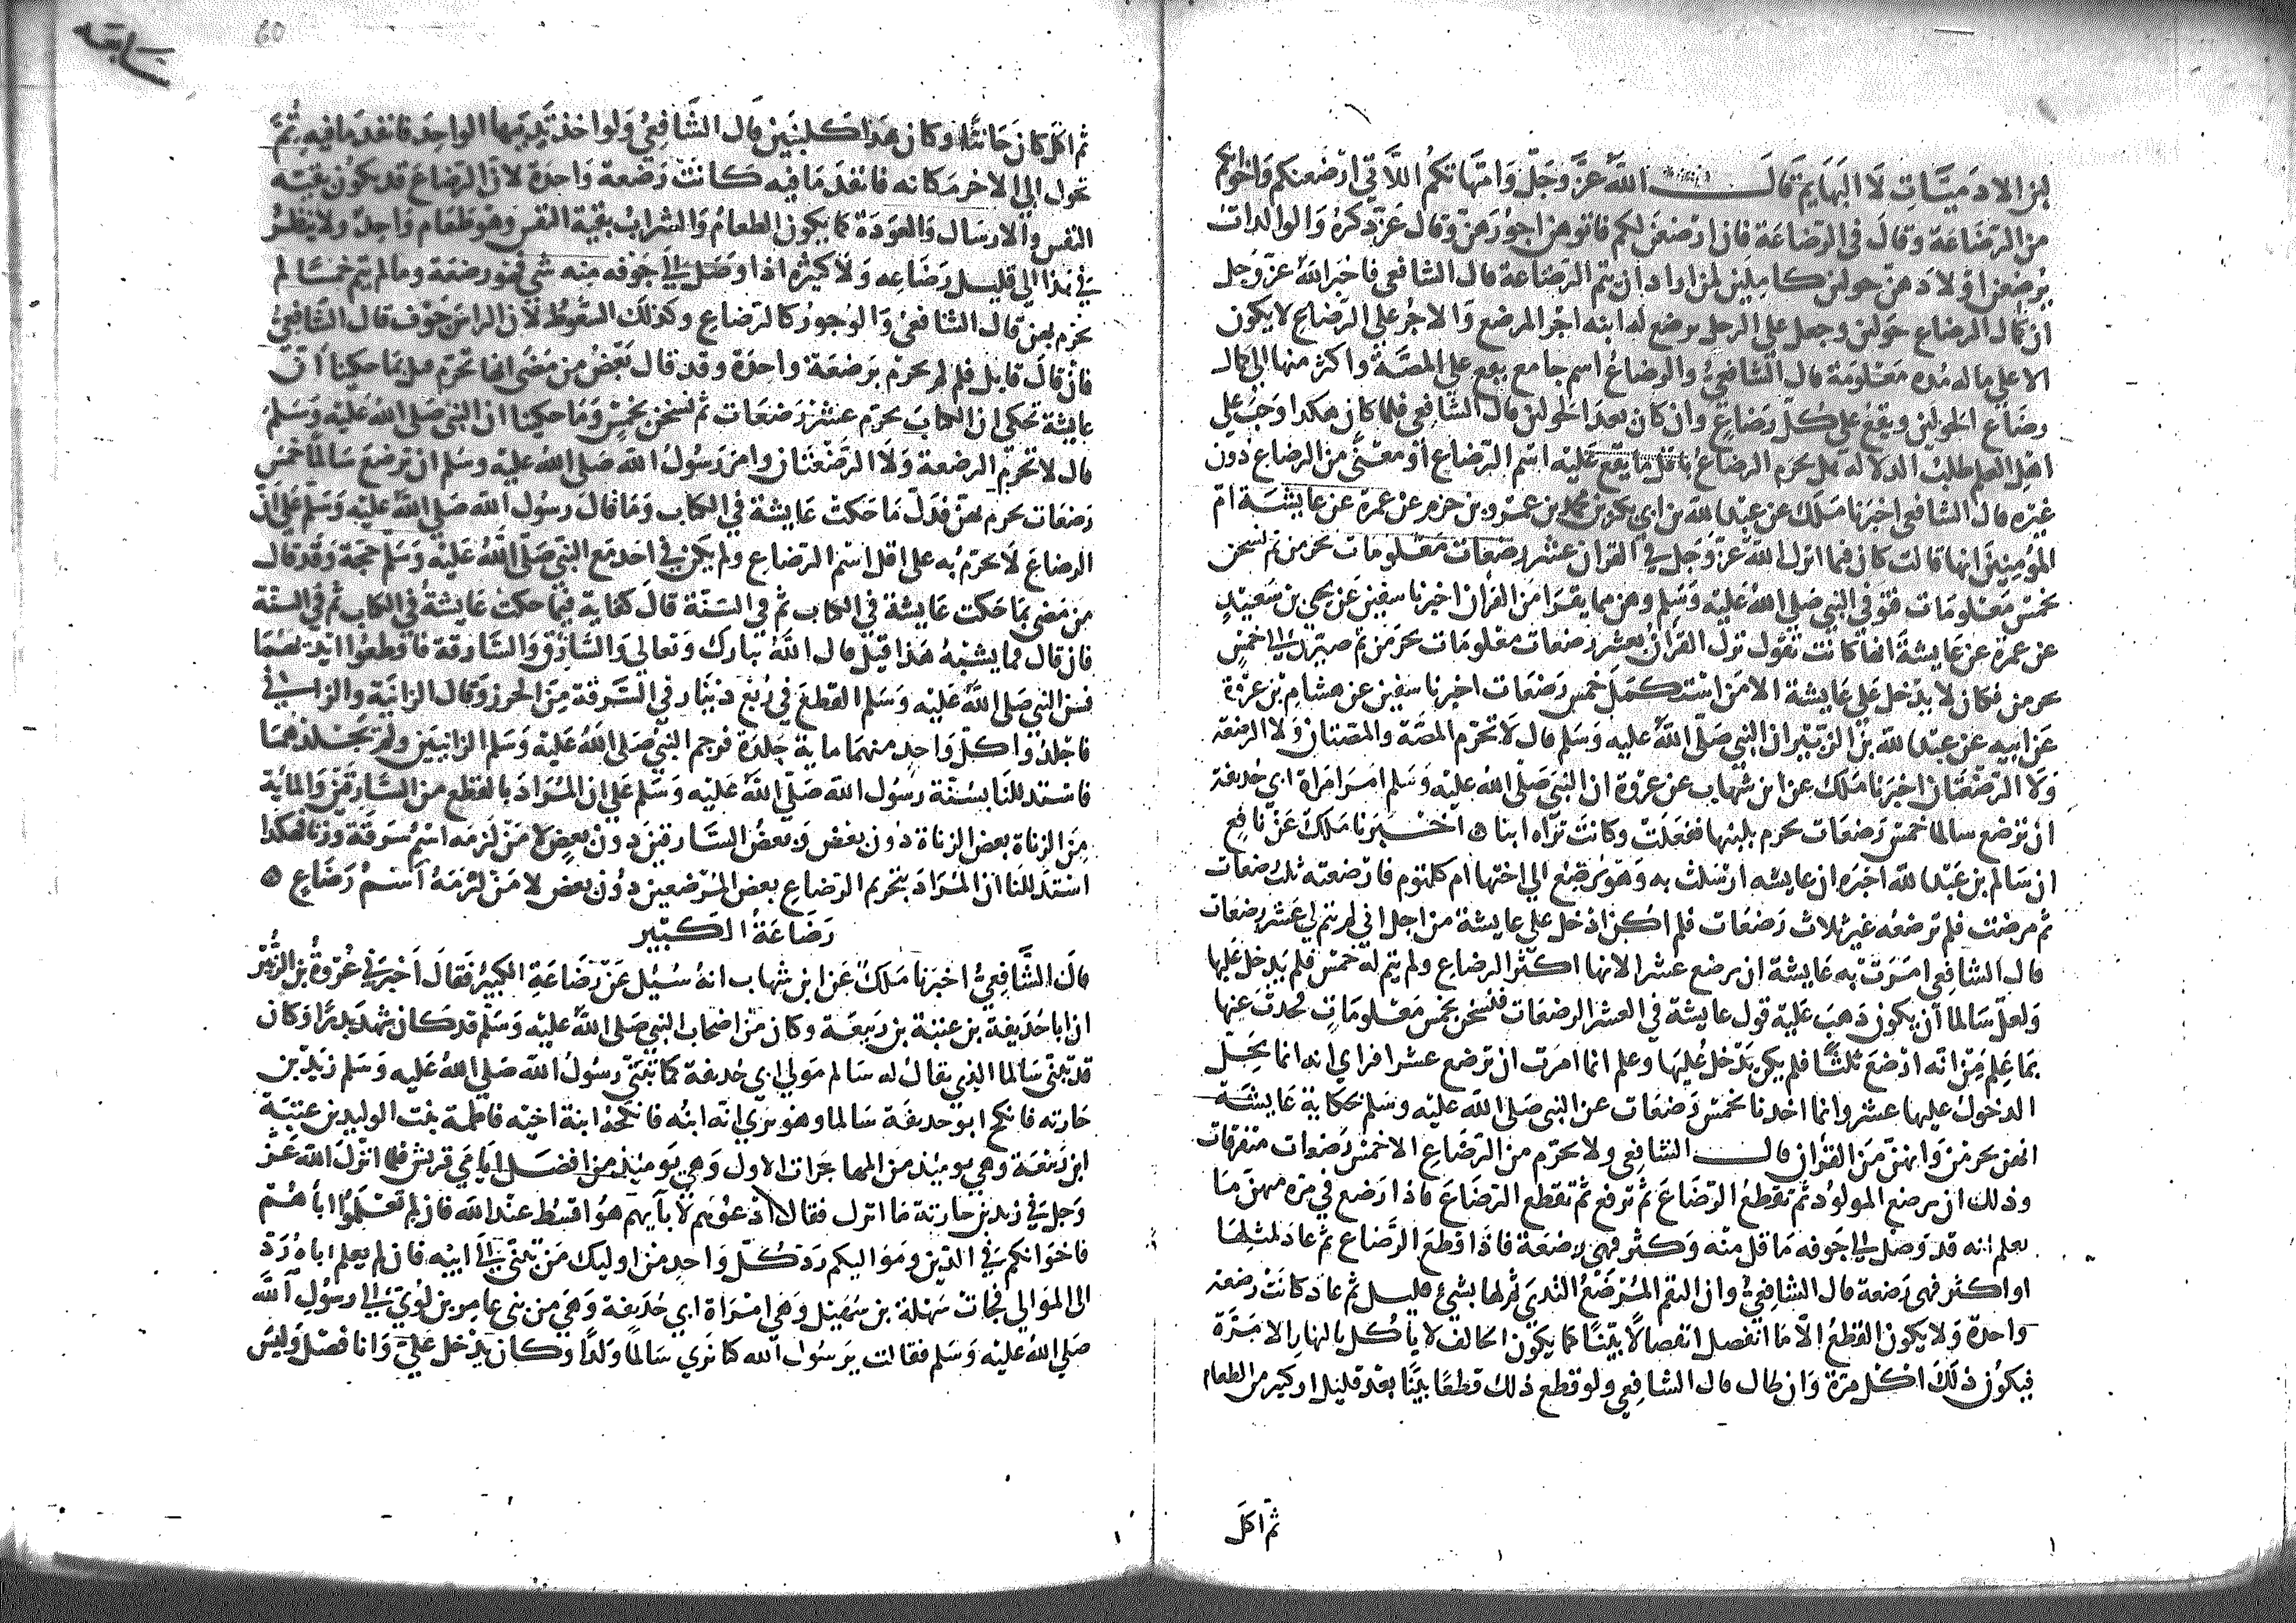 لبن الادميات لا البهايم قال الله عز وجل وامهاتكم اللاتي ارضعنكم واخواتكم
من الرضاعة وقال في الرضاعة فان ارضعن لكم فاتوهن اجورهن وقال عز ذكره والوالدات
يرضعن اولادهن حولين كاملين لمن اراد ان يتم الرضاعة قال الشافعي فاخبر الله عز وجل
ان كمال الرضاع حولين وجعل على الرجل يرضع له ابنه اجر المرضع والاجر على الرضاع لا يكون
الا على ما له مدة معلومة قال الشافعي والرضاع اسم جامع يقع على المصة واكثر منها الى كمال
رضاع الحولين ويقع على كل رضاع وان كان بعد الحولين قال الشافعي فلما كان هكذا وجب على
اهل العلم طلب الدلالة هل يحرم الرضاع باقل ما يقع عليه اسم الرضاع او معنى من الرضاع دون
غيره قال الشافعي اخبرنا ملك عن عبد الله بن ابي بكر بن محمد بن عمرو بن حزم عن عمرة عن عايشة ام
المؤمنين انها قالت كان فيما انزل الله عز وجل في القران عشر رضعات معلومات يحرمن ثم نسخن
بخمس معلومات فتوفي النبي صلى الله عليه وسلم وهن مما يقرا من القران اخبرنا سفين عن يحيى بن سعيد
عن عمرة عن عايشة انها كانت تقول نزل القران بعشر رضعات معلومات يحرمن ثم صيرن الى خمس
يحرمن فكان لا يدخل على عايشة الا من استكمل خمس رضعات اخبرنا سفين عن هشام بن عروة
عن ابيه عن عبد الله بن الزبير ان النبي صلى الله عليه وسلم قال لا تحرم المصة والمصتان ولا الرضعة
ولا الرضعتان اخبرنا ملك عن ابن شهاب عن عروة ان النبي صلى الله عليه وسلم امر امراة ابي حذيفة
ان ترضع سالما خمس رضعات يحرم بلبنها ففعلت وكانت تراه ابنا ه اخبرنا ملك عن نافع
ان سالم بن عبد الله اخبره ان عايشه ارسلت به وهو يرضع الى اختها ام كلثوم فارضعته ثلث رضعات
ثم مرضت فلم ترضعه غير ثلاث رضعات فلم اكن ادخل على عايشة من اجل اني لم تتم لي عشر رضعات
قال الشافعي امرت به عايشة ان يرضع عشرا لانها اكثر الرضاع ولم يتم له خمس فلم يدخل عليها
ولعل سالما ان يكون ذهب عليه قول عايشة في العشر الرضعات فنسخن بخمس معلومات فحدث عنها
بما علم من انه ارضع ثلثا فلم يكن يدخل عليها وعلم انما امرت ان ترضع عشرا فراي انه انما يحل
الدخول عليها عشر وانما اخذنا بخمس رضعات عن النبي صلى الله عليه وسلم بحكاية عايشة
انهن يحرمن وانهن من القران قال الشافعي ولا يحرم من الرضاع الا خمس رضعات متفرقات
وذلك ان يرضع المولود ثم تقطع الرضاع ثم ترفع ثم تقطع الرضاع فاذا رضع في مرة منهن ما
يعلم انه قد وصل الى جوفه ما قل منه وكثر فهي رضعة فاذا قطع الرضاع ثم عاد لمثلها
او اكثر فهي رضعة قال الشافعي وان التقم المرضع الثدي ثم لها بشئ قليل ثم عاد كانت رضعة
واحدة ولا يكون القطع الا ما انفصل انفصالا بينا كما يكون الحالف لا ياكل بالنهار الا مرة
فيكون ذلك اكل مرة وان طال قال الشافعي ولو قطع ذلك قطعا بينا بعد قليل او كثير من الطعام
ثم اكل
60
ثم اكل كان حانثا وكان هذا كلتين قال الشافعي ولو اخذ ثدييها الواحد فانفد ما فيه ثم
تحول الى الاخر مكانه فانفد ما فيه كانت رضعة واحدة لان الرضاع قد يكون بقية
النفس والارسال والعودة كما يكون الطعام والشراب بقية النفس وهو طعام واحد ولا ينظر
في هذا الى قليل رضاعه ولا كثيره اذا وصل الى جوفه منه شي فهو رضعة وما لم يتم خمسا لم
يحرم بهن قال الشافعي والوجور كالرضاع وكذلك السعوط لان الراس جوف قال الشافعي
فان قال قايل فلم لم يحرم برضعة واحدة وقد قال بعض من مضى انها تحرم قيل بما حكينا ان
عايشة تحكي ان الكتاب يحرم عشر رضعات ثم نسخن بخمس وما حكينا ان النبي صلى الله عليه وسلم
قال لا تحرم الرضعة ولا الرضعتان وامر رسول الله صلى الله عليه وسلم ان ترضع سالما خمس
رضعات يحرم بهن فدل ما حكت عايشة في الكتاب وما قال رسول الله صلى الله عليه وسلم على ان
الرضاع لا يحرم به على اقل اسم الرضاع ولم يكن في احد مع النبي صلى الله عليه وسلم حجة وقد قال
من مضى بما حكت عايشة في الكتاب ثم في السنة قال كفاية فيما حكت عايشة في الكتاب ثم في السنة
فان قال فما يشبه هذا قيل قال الله تبارك وتعالى والسارق والسارقة فاقطعوا ايديهما
فسن النبي صلى الله عليه وسلم القطع في ربع دينار وفي السرقة من الحرز وقال الزانية والزاني
فاجلدوا كل واحد منهما ماية جلدة فرجم النبي صلى الله عليه وسلم الزانيين ولم يجلدهما
فاستدللنا بسنة رسول الله صلى الله عليه وسلم على ان المراد بالقطع من السارقين والماية
من الزناة بعض الزناة دون بعض وبعض السارقين دون بعض لا من لزمه اسم سرقة وزنا فهكذا
استدللنا ان المراد بتحريم الرضاع بعض المرضعين دون بعض لا من لزمه اسم رضاع ه
رضاعة الكبير
قال الشافعي اخبرنا ملك عن ابن شهاب انه سئل عن رضاعة الكبير فقال اخبرني عروة بن الزبير
ان ابا حذيفة بن عتبة بن ربيعة وكان من اصحاب النبي صلى الله عليه وسلم قد كان شهد بدرا وكان
قد تبنى سالما الذي يقال له سالم مولى ابي حذيفة كما تبنى رسول الله صلى الله عليه وسلم زيد بن
حارثه فانكح ابو حذيفة سالما وهو يرى انه ابنه فانكحه ابنة اخيه فاطمة بنت الوليد بن عتبة
ابن ربيعة وهي يوميذ من المهاجرات الاول وهي يوميذ من افضل ايامى قريش فلما انزل الله عز
وجل في زيد بن حارثة ما انزل فقال ادعوهم لآبايهم هو اقسط عند الله فان لم تعلموا اباهم
فاخوانكم في الدين ومواليكم رد كل واحد من اوليك من تبنى الى ابيه فان لم يعلم اباه رد
الى الموالي فجات سهلة بنت سهيل وهي امراة ابي حذيفة وهي من بني عامر بن لؤي الى رسول الله
صلى الله عليه وسلم فقالت يرسول الله كنا نرى سالما ولدا وكان يدخل علي وانا فضل وليس